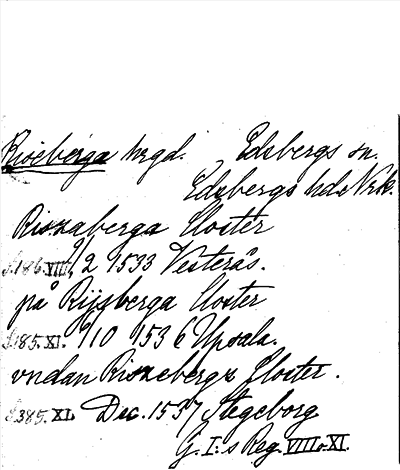 Riseberga hrgd. Edsbergs sn.
Edsbergs hd Nrk.
Risnaberga Closter
S.186.VIII. 9/2 1533 Vesterås.
på Rijsberga Closter
S.185.XI. 9/10 1536 Upsala.
vndan Risneberga Closter.
S.385.XI. Dec. 1537 Stegeborg
G. I:s Reg. VIII o. XI.